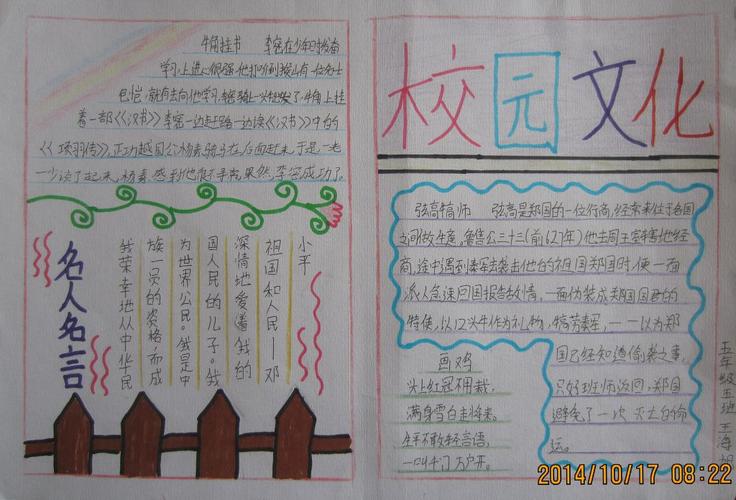 牛角挂书 李密在少年时发奋
学习,上进心很强,他打听到缑山有一位名士
包恺,就前去向他学习,李密骑上一头牛出发了,牛角上挂
着一部《汉书》李密一边赶路一边读《汉书》中的
《项羽传》,正巧越国公杨素骑马在后面赶来,于是一老
一少谈了起来,杨素感到他很了果然,李密成功了。
名人名言
我荣幸地从中华民
族一员的资格,而成
为世界公民。我是中
国人民的儿子。我
深情地爱着我的
祖国和人民——邓
小平
校园文化
弦高犒师 弦高是郑国的一位行商,经常来往于各国
之间做生意,鲁僖公三十三(前627年)他去周王室辖地经
商,途中遇到秦军去袭击他的祖国郑国时,便一面
派人急速回国报告敌情,一面伪装成郑国国君的
特使,以12头牛作为礼物,犒劳秦军,——以为郑
国已经知道偷袭之事,
只好班师返回,郑国
避免了一次灭亡的命
运。
画鸡
头上红冠不用裁,
满身雪白走将来。
生平不敢轻言语,
一叫千门万户开。
五年级五班 王海
2014/10/17 08:22